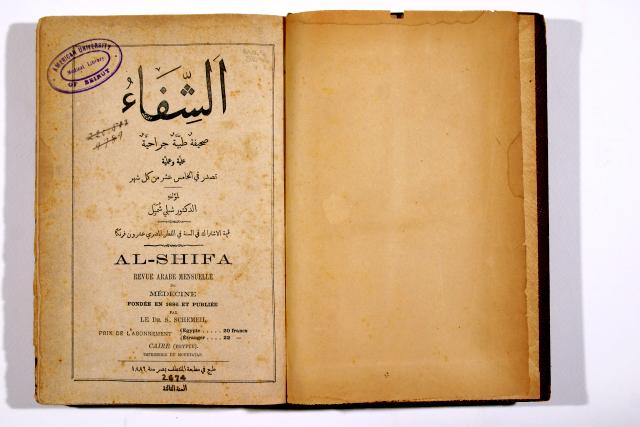 AMERICAN UNIVERSITY
Medical Library
OF BEIRUT
الشِّفَاءُ
صحيفة طبيَّة جراحيَّة
علمية وعملية
تصدر في الخامس عشر من كل شهر
لمؤلفه
الدكتور شبلي شميل
قيمة الاشتراك في السنة في القطر المصري عشرون فرنكًا
AL-SHIFA
REVUE ARABE MENSUELLE
DE
MÉDECINE
FONDÉE EN 1886 ET PUBLIÉE
PAR
LE DR. S. SCHEMEIL
PRIX DE L'ABONNEMENT
(Egypte ..... 20 francs
(Etranger .... 22 —
CAIRE (EGYPTE).
IMPRIMERIE DU MOKTATAF.
طبع في مطبعة المقتطف بمصر سنة ١٨٨٦
2674
السنة الثالثة